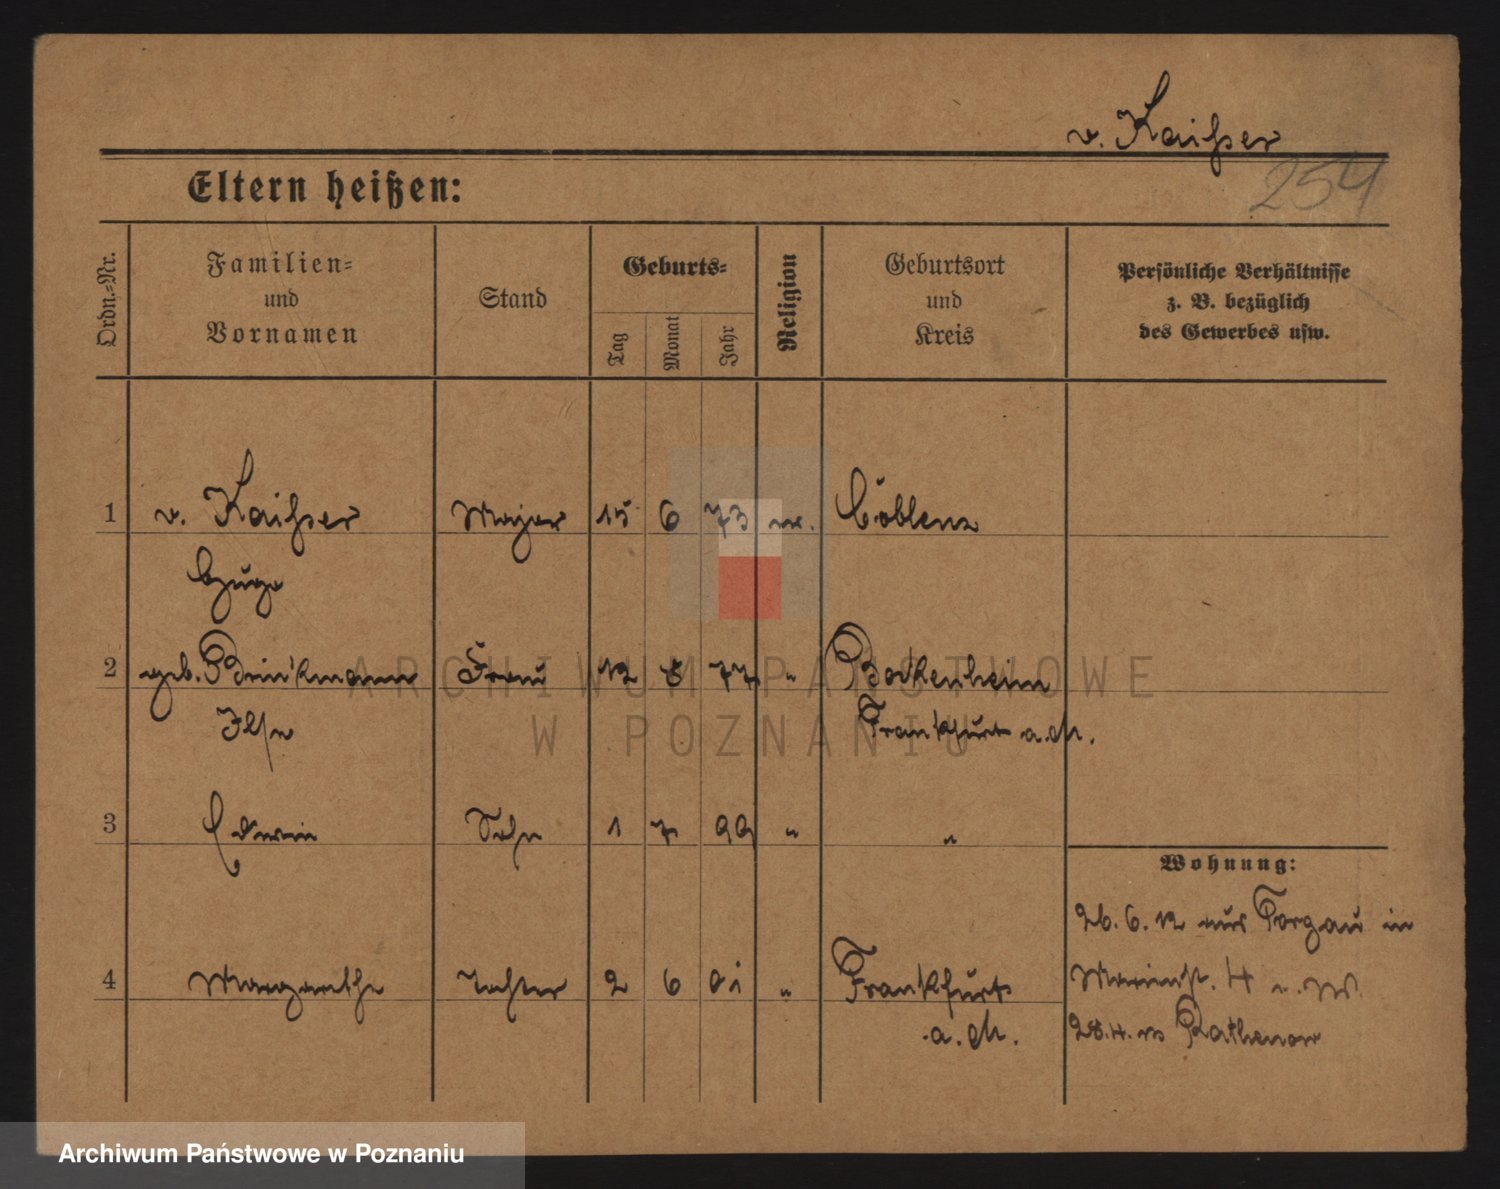 v. Kaisser
254
Eltern heißen:
Ordn.-Nr. Familien- und Vornamen Stand Geburts- Tag Monat Jahr Religion Geburtsort und Kreis Persönliche Verhältnisse z. B. bezüglich des Gewerbes usw.
1 v. Kaisser Major 15 6 73 Coblenz
Hugo
2 geb. Brinkmann Frau 12 8 77 " Bockenheim
Ilse Frankfurt a. M.
3 Erwin Sohn 1 7 99 " "
Wohnung:
26. 6. 12 aus Torgau in
4 Margarethe Tochter 2 6 01 " Frankfurt
4
a. M.
28. 4. Rathenow
ARCHIWUM PAŃSTWOWE
W POZNANIU
Archiwum Państwowe w Poznaniu